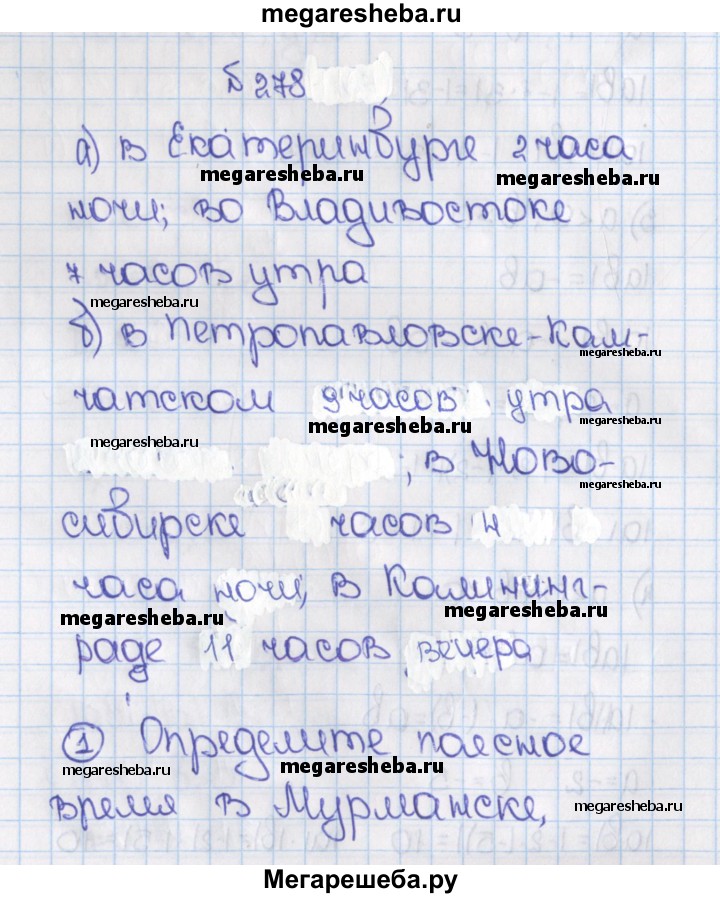 megaresheba.ru
№ 278
а) в Екатеринбурге 2 часа
megaresheba.ru
megaresheba.ru
ночи; во Владивостоке
7 часов утра
megaresheba.ru
б) в Петропавловске-Кам-
megaresheba.ru
чатском 9 часов утра
megaresheba.ru
megaresheba.ru
megaresheba.ru
; в Ново-
megaresheba.ru
сибирске часов 4
megaresheba.ru
часа ночи, в Калининг-
megaresheba.ru
megaresheba.ru
раде 11 часов вечера
① Определите поясное
megaresheba.ru
megaresheba.ru
время в Мурманске,
megaresheba.ru
Мегарешеба.ру